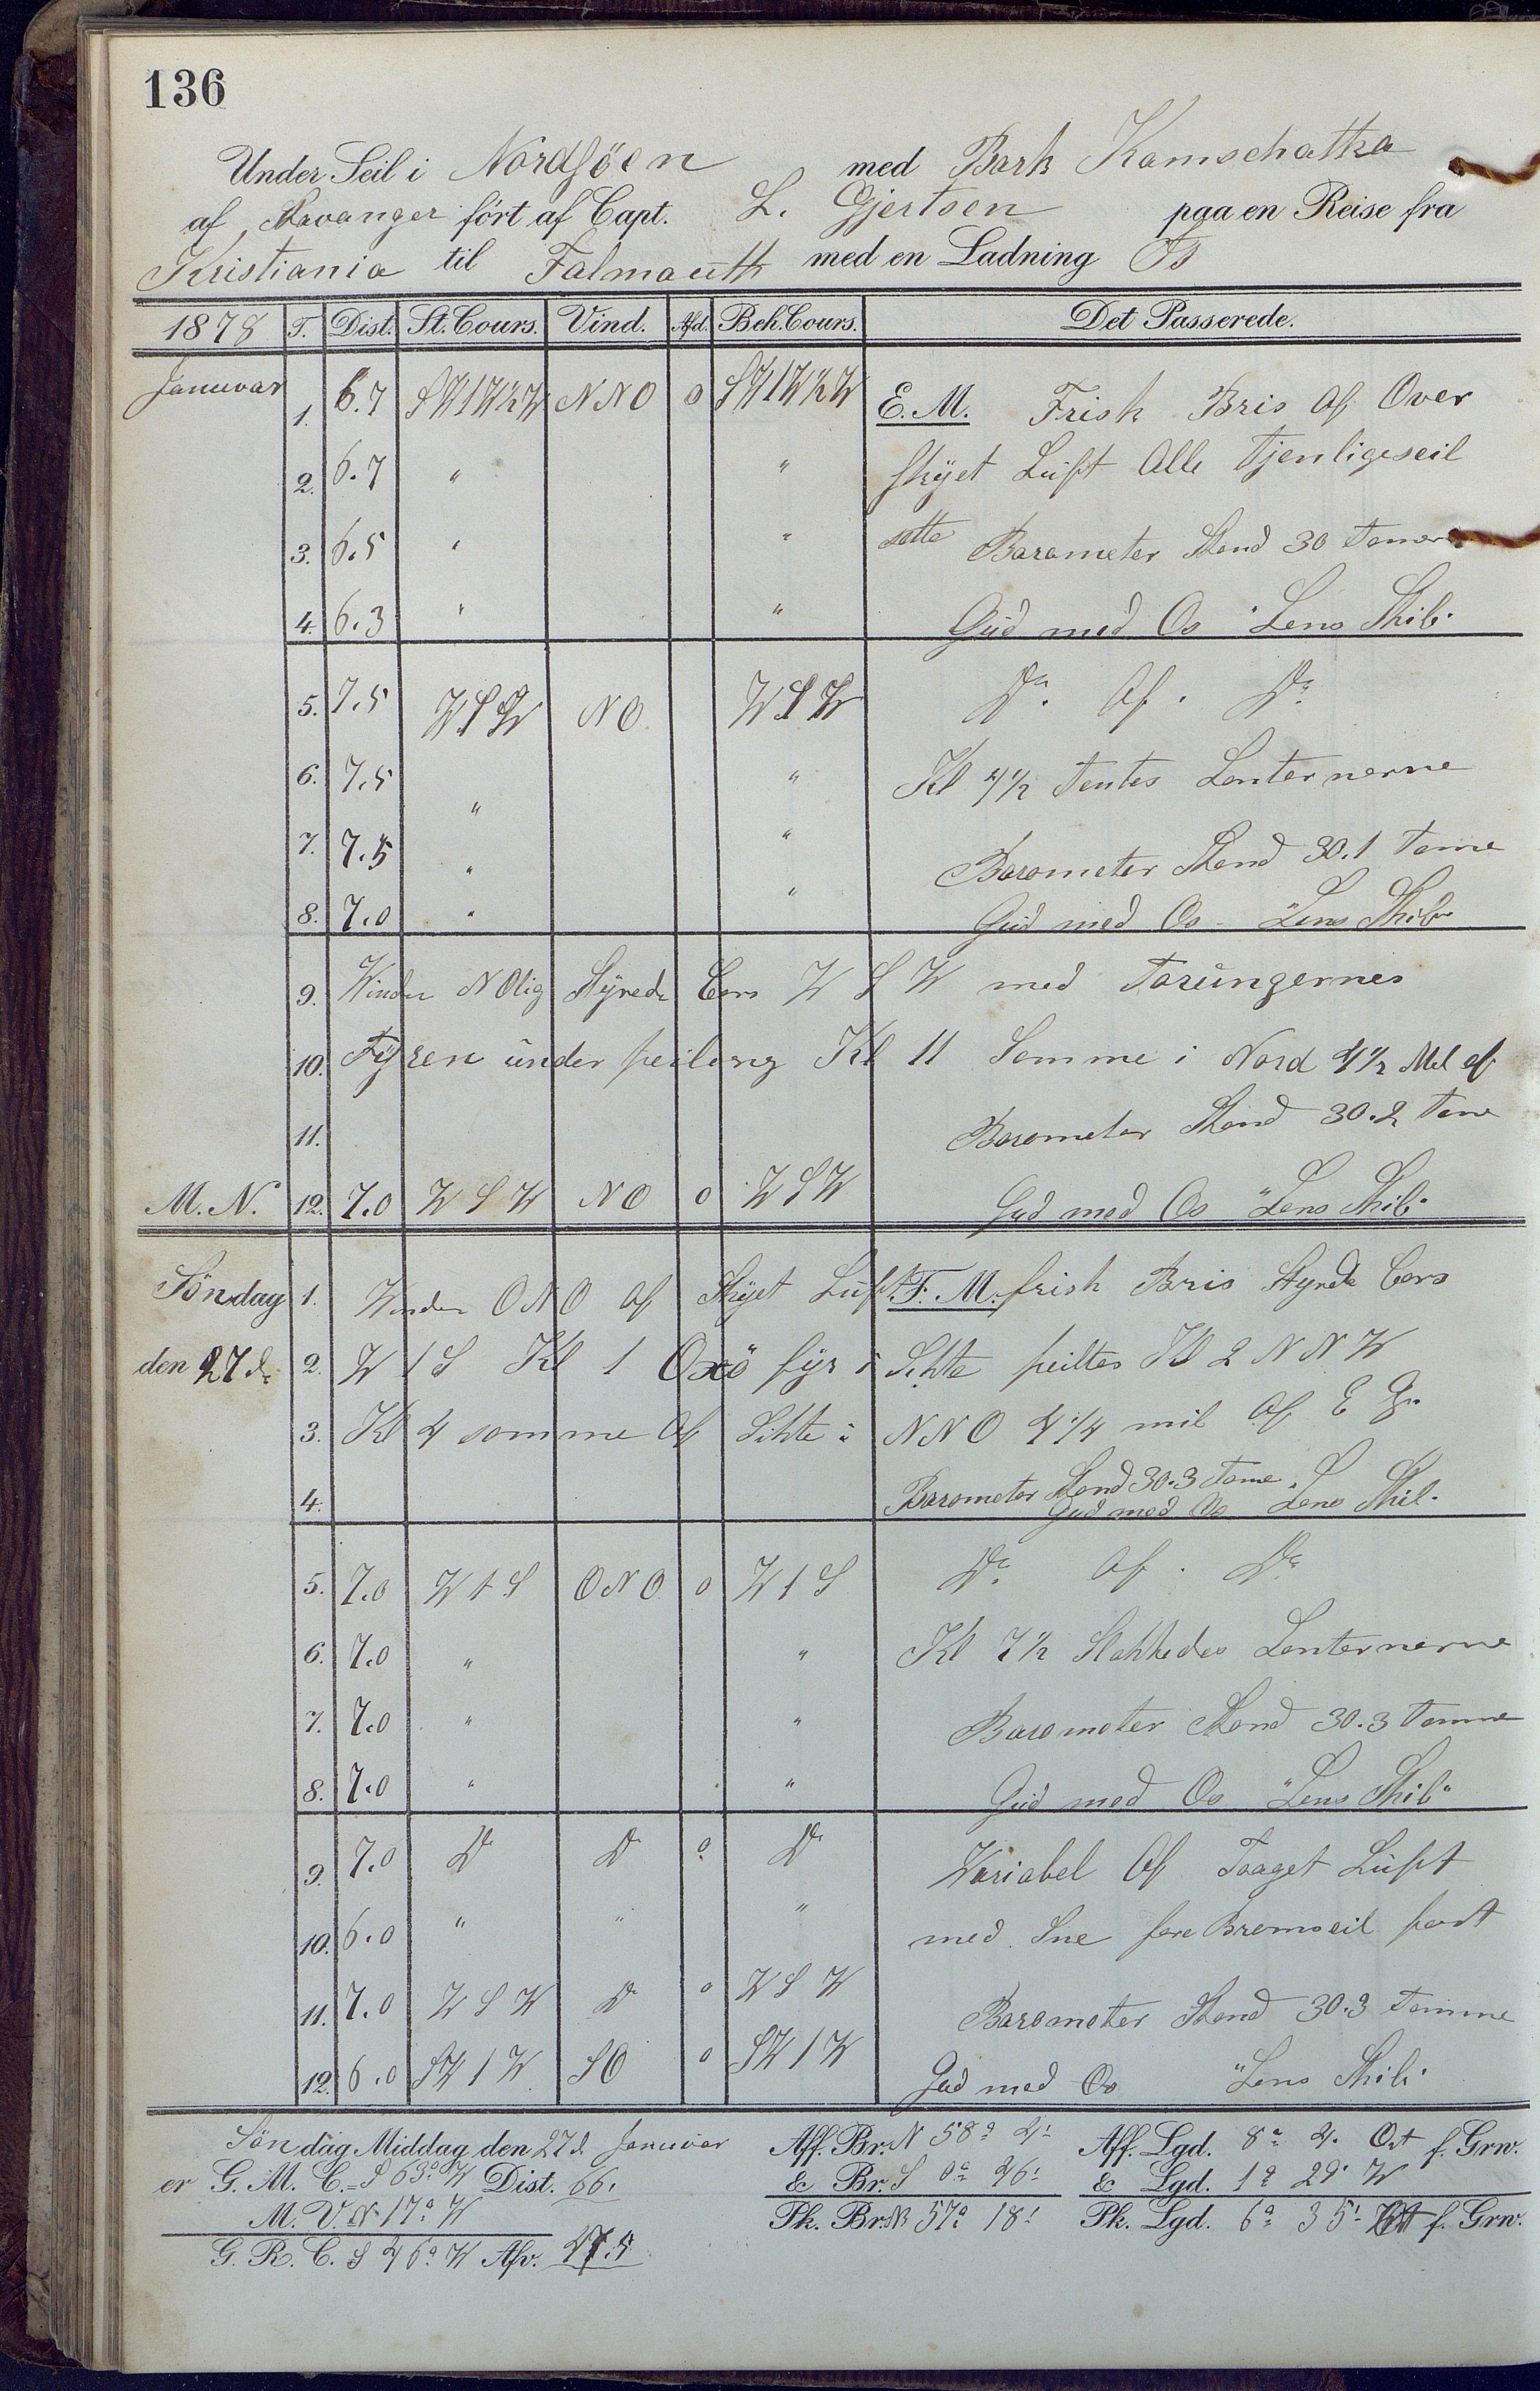 136
Under Seil i Nordsöen med Bark Kamschatka
af Stavanger fört af Capt. L. Gjertsen paa en Reise fra
Kristiania til Falmauth med en Ladning Is
1878 T. Dist. St. Cours. Vind. Afd. Beh. Cours. Det Passerede.
Januvar 1. 6.7 SW1W½W NNO 0 SW1W½W E. M. Frisk Bris Og Over
2. 6.7 " " skÿet Lüft Alle Tjenligeseil
3. 6.5 " " satte Barometer Stand 30 Tomer
4. 6.3 " " Güd med Os "Lens Skib"
5. 7.5 WSW NO WSW Do. Og. Do.
6. 7.5 " " Kl 4½ Tentes Lanternerne
7. 7.5 " " Barometer Stand 30.1 Tome
8. 7.0 " " Güd med Os "Lens Skib"
9. Winden NOlig Stÿrede Cors WSW med Torüngernes
10. Fÿren ünder peiling Kl 11 Somme i Nord 4½ Mil af
11. Barometer Stand 30.2 Tome
M. N. 12. 7.0 WSW NO 0 WSW Gud med Os "Lens Skib"
Söndag 1. Winden ONO Og Skÿet Lüft. F. M. frisk Bris Styrede Cors
den 27 de 2. W1S Kl 1 Oxö fÿr i Sikte peiltes Kl 2 NNW
3. Kl 4 somme Af Sikte i NNO 4¼ mil Af
4. Barometer Stand 30.3 Tome Gud med Os "Lens Skib"
5. 7.0 W1S ONO 0 W1S Do. Og. Do.
6. 7.0 " " Kl 7½ Slakkedes Lanternerne
7. 7.0 " " Barometer Stand 30.3 Tomme
8. 7.0 " " Güd med Os "Lens Skib"
9. 7.0 Do Do 0 Do Variabel Og Taaget Lüft
10. 6.0 " " " med Sne fore Bremseil fast
11. 7.0 WSW Do 0 WSW Barometer Stand 30.3 Tomme
12. 6.0 SW1W SO 0 SW1W Gud med Os "Lens Skib"
Söndag Middag den 27 d Januvar Aff. Br. N 58° 4' Aff. Lgd. 8° 4' Ost f. Grw.
er G. M. C. S 63° W Dist. 66' & Br. S 0° 46' & Lgd. 1° 29' W
M. V. N 17° W Pk. Br. N 57° 18' Pk. Lgd. 6° 35' Ost f. Grw.
G. R. C. S 46° W Afv. 47.5